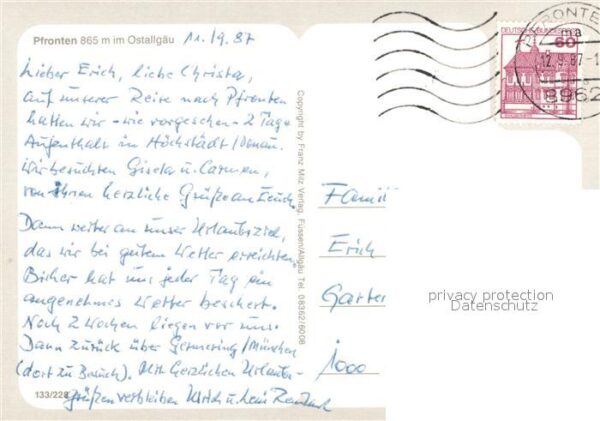 Pfronten 865 m im Ostallgäu
11.9.87
Lieber Erich, liebe Christa,
auf unserer Reise nach Pfronten
hatten wir - wie vorgesehen - 2 Tage
Aufenthalt in Höchstädt/Donau.
Wir besuchten Gisela u. Carmen,
von Ihnen herzliche Grüße an Euch.
Dann weiter an unser Urlaubsziel,
das wir bei gutem Wetter erreichten.
Bisher hat uns jeder Tag ein
angenehmes Wetter beschert.
Noch 2 Wochen liegen vor uns.
Dann zurück über Germering/München
(dort zu Besuch). Mit herzlichen Urlaubs-
grüßen verbleiben Ulrich u.
133/228
Copyright by Franz Milz Verlag, Füssen/Allgäu Tel. 08362/6008
Famil
Erich
Garte
1000
60
PFRONTEN
12.9.87-1
8962
privacy protection
Datenschutz